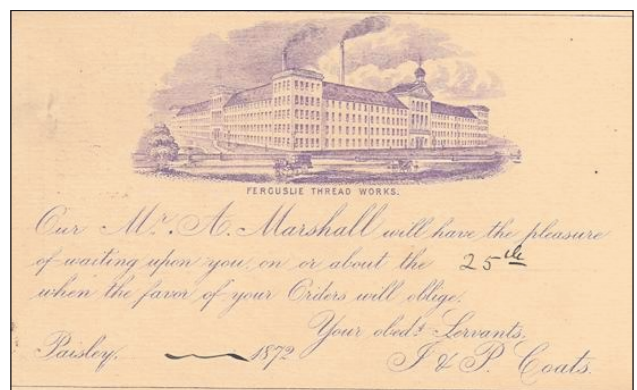 FERGUSLIE THREAD WORKS.
Our Mr. A. Marshall will have the pleasure
of waiting upon you, on or about the 25th
when the favor of your Orders will oblige.
Your obedt. Servants.
Paisley, 1872
J & P. Coats.